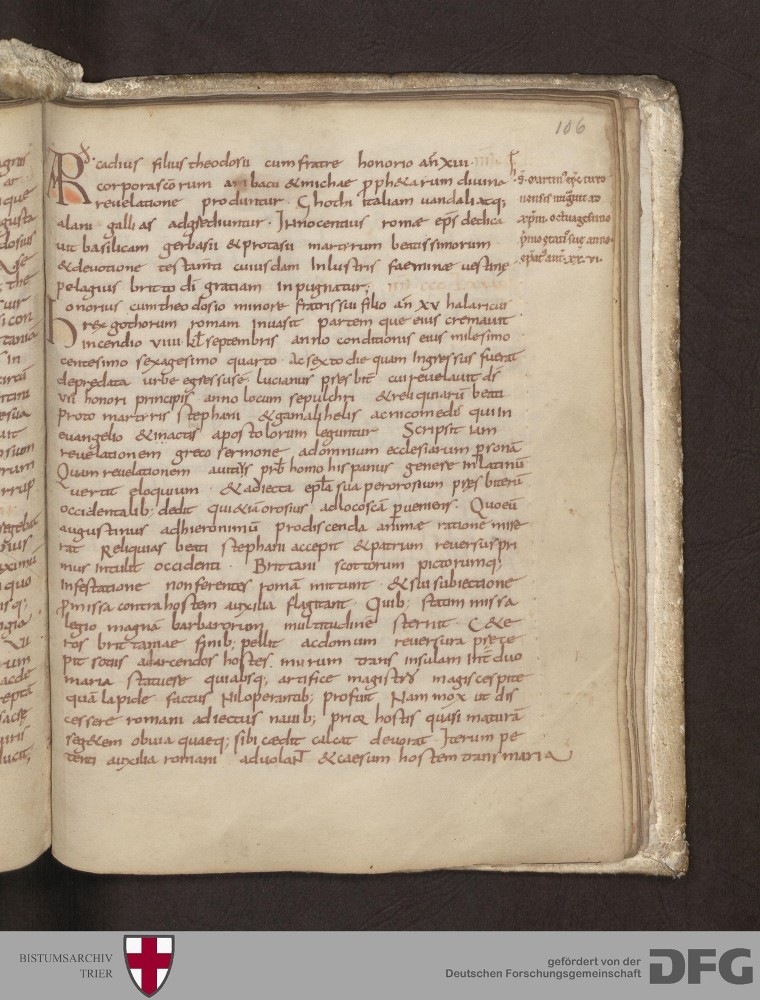 106
Arcadius filius theodosii cum fratre honorio añ XIII.
corpora scōrum ambacū & michae p̄ph&arum divina
revelatione produntur. Ghothi italiam uuandali atq;
alani gallias adgrediuntur. Innocentius romae ep̄s dedica
vit basilicam gerbasii & protasii martyrum beatissimorum
& devotione testam̄ti cuiusdam inlustris faeminae vestine
pelagius britto dī gratiam inpugnatur;
Honorius cum theodosio minore fratris sui filio an̄ XV halaricus
rex gothorum romam invasit partem que eius cremavit
incendio VIIII kl septembris anno conditionis eius milesimo
centesimo sexagesimo quarto. Ac sexto die quam Ingressus fuerat
depredata urbe egressus ē. lucianus pr̄sbit̄ cui revelavit dī
VII honori principis anno locum sepulchri & reliquiarū beati
proto martyris stephani & gamalihelis ac nicomedē qui in
euangelio & in actis apostolorum leguntur Scripsit iam
revelationem greco sermone ad omnium ecclesiarum p̄sonā
Quam revelationem avitus pr̄b homo hispanus genere in latinū
vertit eloquium. & adiecta ep̄la sua per orosium pr̄sbiterū
occidentalib; dedit qui & iā orosius ad loca scā p̄veniens. Quo eū
augustinus ad hieronimū pro discenda animae ratione mise
rat Reliquias beati stephani accepit & patrum reversus pri
mus intulit occidenti. Brittani scottorum pictorumq;
infestatione non ferentes romā mittunt & sui subiectione
p̄missa contra hostem auxilia flagitant. Quib; statim missa
legio magnā barbarorum multitudinē sternit. C&e
ros brittaniae finib; pellit ac domum reversura prece
pit sociis ad arcendos hostes murum trans insulam inter duo
maria statuere qui absq; artifice magistro magis cespite
quā lapide factus Nil operantib; profuit Nam mox ut dis
cessere romani adiectus navib; prior hostis quasi maturā
seg&em obvia quaeq; sibi cædit calcat devorat. Iterum pe
titi auxilia romani advolant & caesum hostem trans maria
S. martinus epc turo
nensis migravit ad
xpm. octuagesimo
primo etatis sue anno.
epatus aut. xx. vi.
BISTUMSARCHIV
TRIER
gefördert von der
Deutschen Forschungsgemeinschaft
DFG